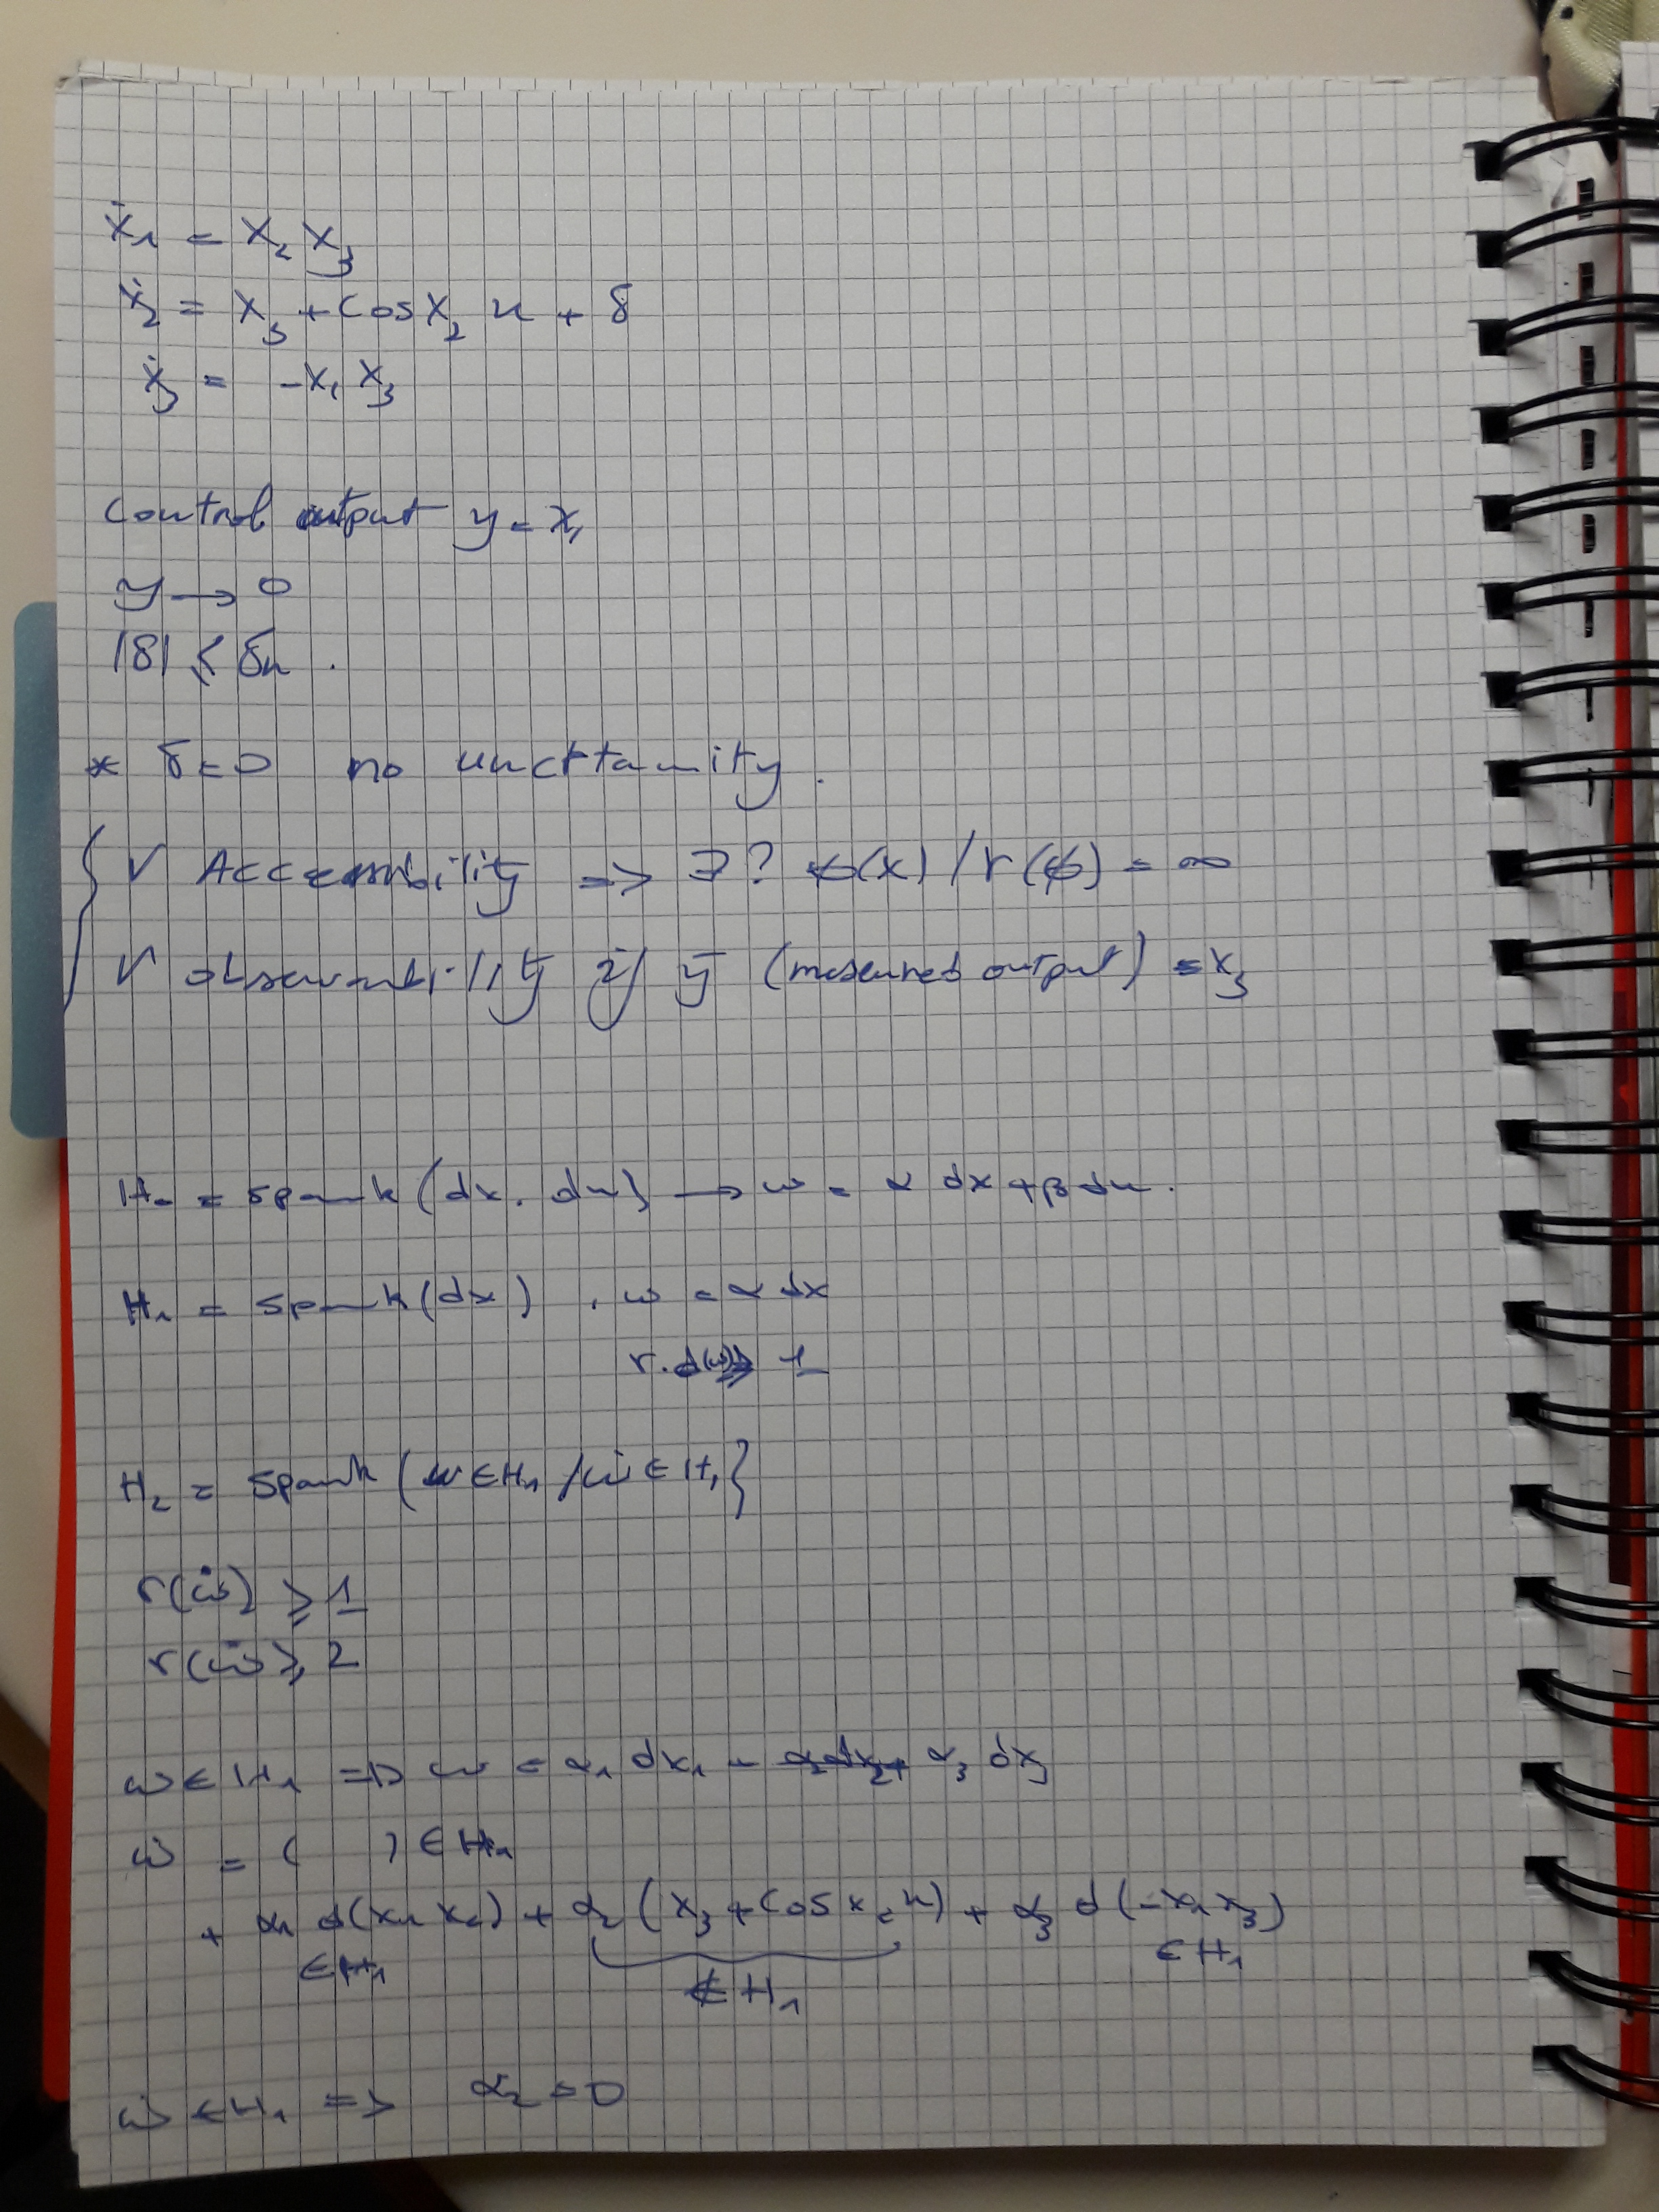 ẋ₁ = x₂ x₃
ẋ₂ = x₃ + cos x₂ u + δ
ẋ₃ = -x₁ x₃
control output y = x₁
y → 0
|δ| ≤ δ_M .
* δ = 0 no uncertainity .
√ Accessibility => ∃? φ(x) / r(φ) = ∞
√ observability if y̅ (measured output) = x₃
H₀ = span_k {dx, du} → ω = α dx + β du .
H₁ = span_k (dx) , ω = α dx
r.d(ω) ≥ 1
H₂ = span_k {ω ∈ H₁ / ω̇ ∈ H₁}
r(ω̇) ≥ 1
r(ω) ≥ 2
ω ∈ H₁ => ω = α₁ dx₁ + α₂ dx₂ + α₃ dx₃
ω̇ = ( ) ∈ H₁
+ α₁ d(x₂ x₃) + α₂ (x₃ + cos x₂ u) + α₃ d(-x₁ x₃)
∈ H₁ ∉ H₁ ∈ H₁
ω̇ ∈ H₁ => α₂ = 0